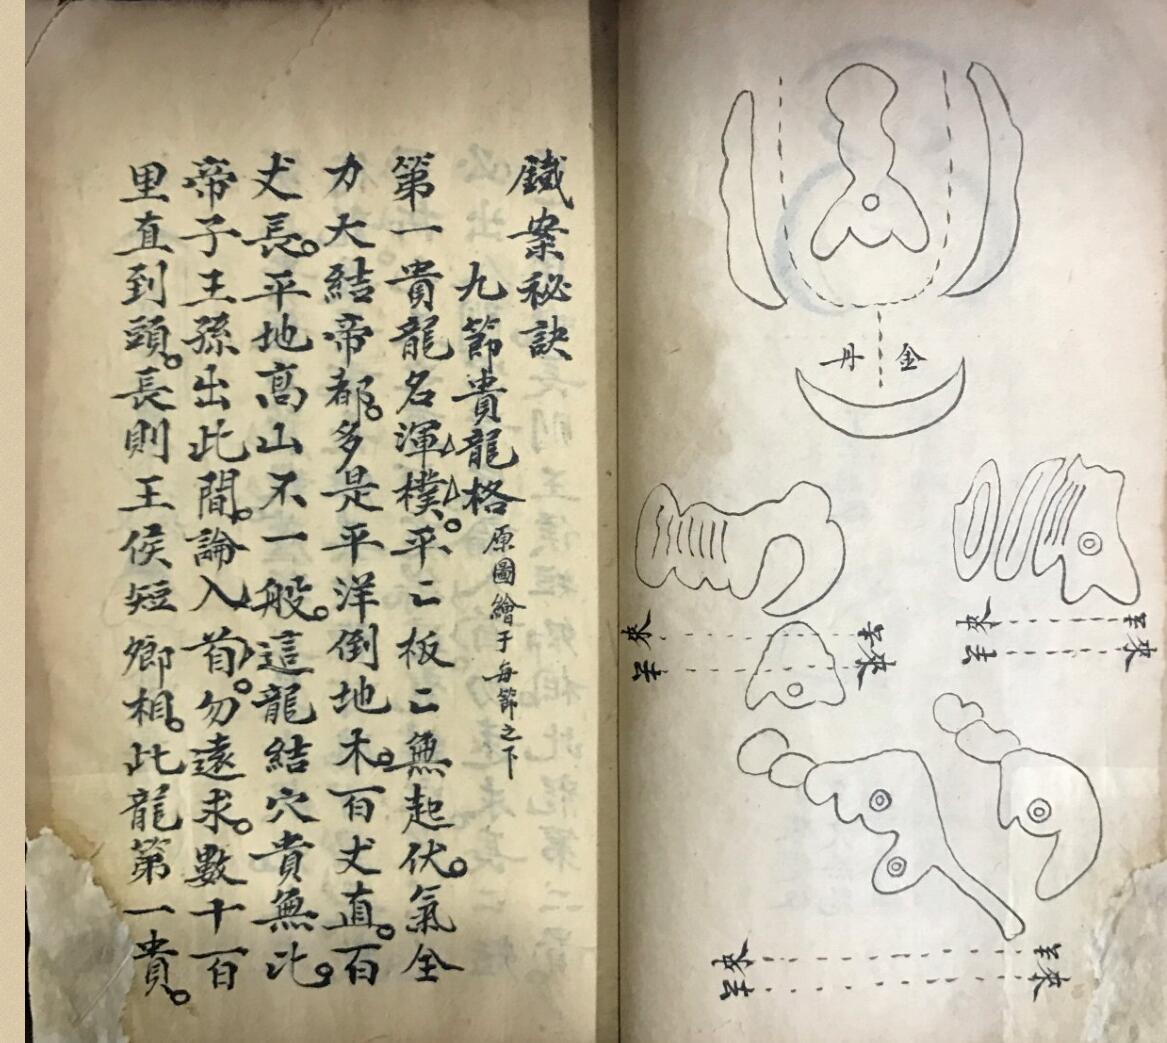 金丹
鐵案秘訣
九節貴龍格 原圖繪于每節之下
第一貴龍名渾樸。平二板二無起伏。氣全
力大結帝都。多是平洋倒地木。百丈直。百
丈長。平地高山不一般。這龍結穴貴無比。
帝子王孫出此間。論入首。勿遠求。數十百
里直到頭。長則王侯短卿相。此龍第一貴。